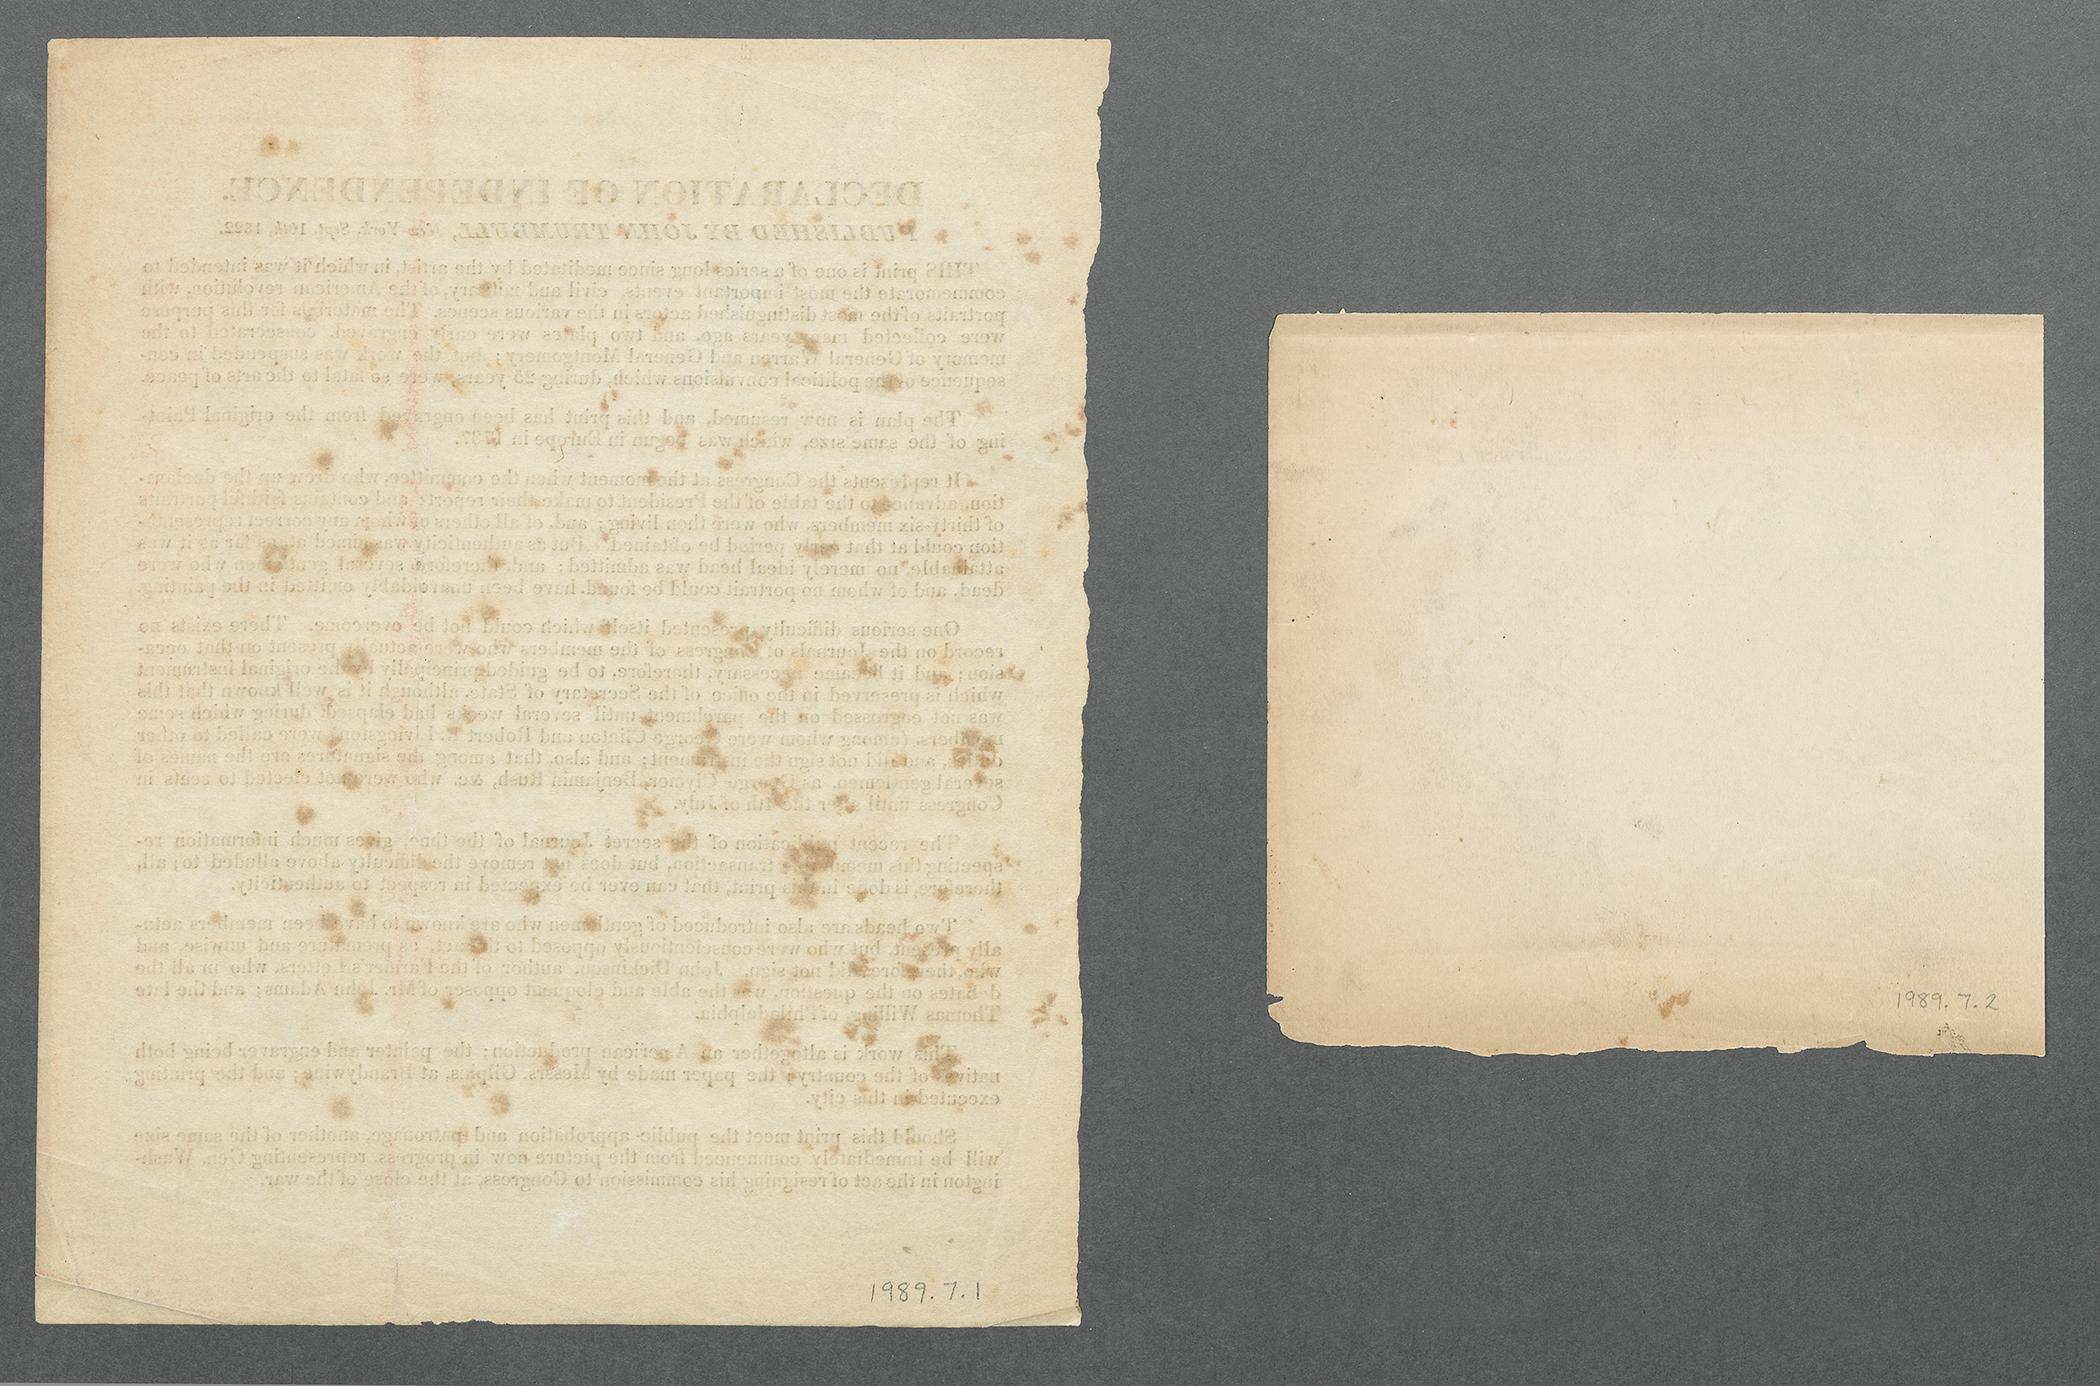 DECLARATION OF INDEPENDENCE.
PUBLISHED BY JOHN TRUMBULL, New-York, Sept. 10th, 1822.
THIS print is one of a series long since meditated by the artist, in which it was intended to
commemorate the most important events, civil and military, of the American revolution, with
portraits of the most distinguished actors in the various scenes. The materials for this purpose
were collected many years ago, and two plates were early engraved, consecrated to the
memory of General Warren and General Montgomery; but the work was suspended in con-
sequence of the political convulsions which, during 25 years, were so fatal to the arts of peace.
The plan is now resumed, and this print has been engraved from the original Paint-
ing of the same size, which was begun in Europe in 1787.
It represents the Congress at the moment when the committee, who drew up the declara-
tion, advance to the table of the President to make their report; and contains faithful portraits
of thirty-six members, who were then living; and, of all others of whom any correct representa-
tion could at that early period be obtained. But as authenticity was aimed at as far as it was
attainable, no merely ideal head was admitted; and, therefore, several gentlemen who were
dead, and of whom no portrait could be found, have been unavoidably omitted in the painting.
One serious difficulty presented itself which could not be overcome. There exists no
record on the Journals of Congress of the members who were actually present on that occa-
sion; and it became necessary, therefore, to be guided principally by the original instrument
which is preserved in the office of the Secretary of State, although it is well known that this
was not engrossed on the parchment until several weeks had elapsed; during which some
members, (among whom were George Clinton and Robert R. Livingston,) were called to other
duties, and did not sign the instrument; and also, that among the signatures are the names of
several gentlemen, as George Clymer, Benjamin Rush, &c. who were not elected to seats in
Congress until after the 4th of July.
The recent publication of the secret Journal of the time, gives much information re-
specting this memorable transaction, but does not remove the difficulty above alluded to; all,
therefore, is done in this print, that can ever be expected in respect to authenticity.
Two heads are also introduced of gentlemen who are known to have been members actu-
ally present, but who were conscientiously opposed to the act, as premature and unwise, and
who, therefore, did not sign. John Dickinson, author of the Farmer's Letters, who in all the
debates on the question, was the able and eloquent opposer of Mr. John Adams; and the late
Thomas Willing, of Philadelphia.
This work is altogether an American production; the painter and engraver being both
natives of the country; the paper made by Messrs. Gilpins, at Brandywine; and the printing
executed in this city.
Should this print meet the public approbation and patronage, another of the same size
will be immediately commenced from the picture now in progress, representing Gen. Wash-
ington in the act of resigning his commission to Congress, at the close of the war.
1989.7.1
1989.7.2